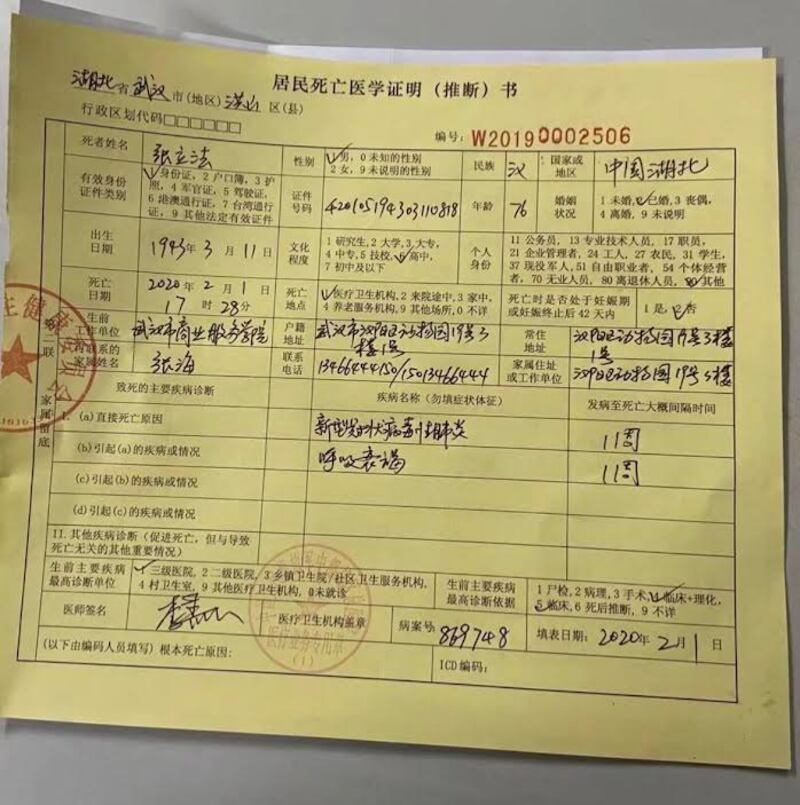 居民死亡医学证明（推断）书
湖北省武汉市(地区)洪山区(县)
行政区划代码□□□□□□
编号: W20190002506
死者姓名 张立法 性别 1男, 0未知的性别 2女, 9未说明的性别 民族 汉 国家或地区 中国湖北
有效身份证件类别 1身份证, 2户口簿, 3护照, 4军官证, 5驾驶证, 6港澳通行证, 7台湾通行证, 9其他法定有效证件 证件号码 420105194303110818 年龄 76 婚姻状况 1未婚, 2已婚, 3丧偶, 4离婚, 9未说明
出生日期 1943年3月11日 文化程度 1研究生, 2大学, 3大专, 4中专, 5技校, 6高中, 7初中及以下 个人身份 11公务员, 13专业技术人员, 17职员, 21企业管理者, 24工人, 27农民, 31学生, 37现役军人, 51自由职业者, 54个体经营者, 70无业人员, 80离退休人员, 90其他
死亡日期 2020年2月1日 17时28分 死亡地点 1医疗卫生机构, 2来院途中, 3家中, 4养老服务机构, 9其他场所, 0不详 死亡时是否处于妊娠期或妊娠终止后42天内 1是, 2否
生前工作单位 武汉市商业服务学院 户籍地址 武汉市汉阳区动物园19号3楼1号 常住地址 汉阳区动物园19号3楼1号
可联系的家属姓名 张海 联系电话 13466444150/15013466444 家属住址或工作单位 汉阳区动物园19号3楼
致死的主要疾病诊断 疾病名称（勿填症状体征） 发病至死亡大概间隔时间
I. (a)直接死亡原因 新型冠状病毒性肺炎 11周
(b)引起(a)的疾病或情况 呼吸衰竭 11周
(c)引起(b)的疾病或情况
(d)引起(c)的疾病或情况
II.其他疾病诊断（促进死亡, 但与导致死亡无关的其他重要情况）
生前主要疾病最高诊断单位 1三级医院, 2二级医院, 3乡镇卫生院/社区卫生服务机构, 4村卫生室, 9其他医疗卫生机构, 0未就诊 生前主要疾病最高诊断依据 1尸检, 2病理, 3手术, 4临床+理化, 5临床, 6死后推断, 9不详
医师签名 医疗卫生机构盖章 病案号: 869748 填表日期: 2020年2月1日
(以下由编码人员填写) 根本死亡原因: ICD编码:
第二联
家属留底
医疗业务专用章
(1)